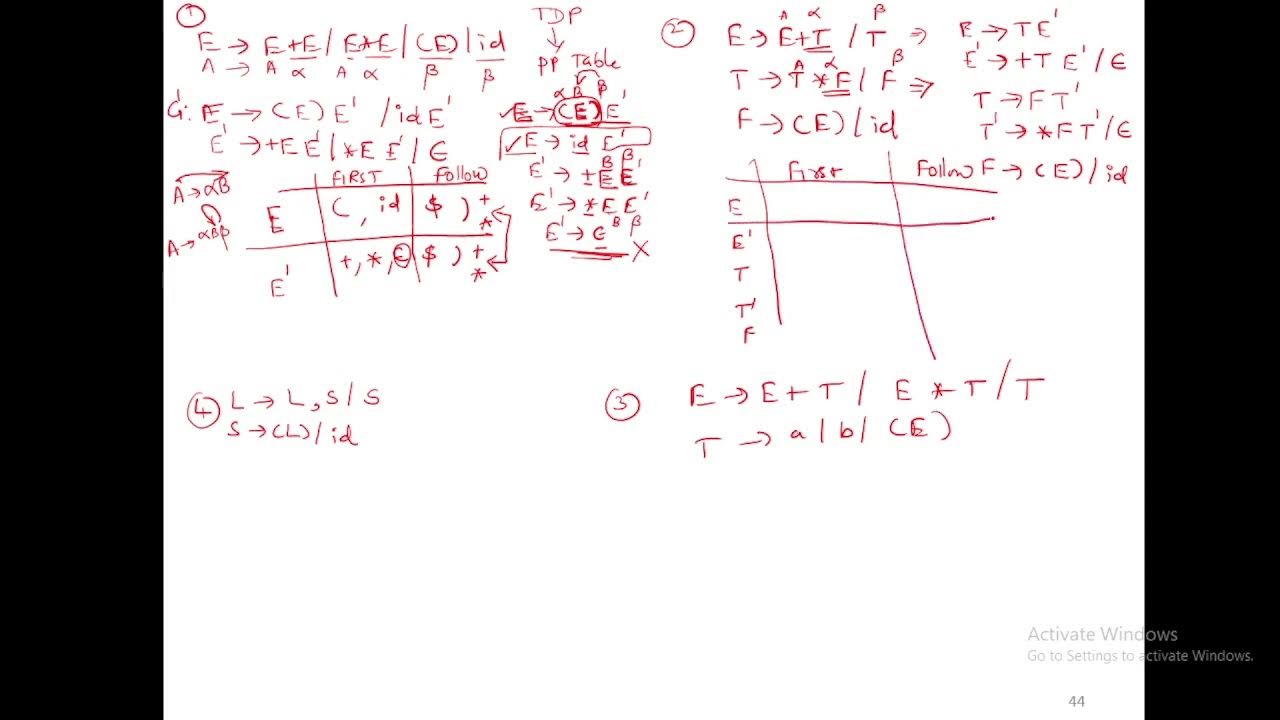 ①
E → E+E / E*E / (E) / id
A → A α A α β β
G': E → (E) E' / id E'
E' → +E E' / *E E' / ε
A → αB
A → αBβ
FIRST Follow
E ( , id $ ) + *
E' +, *, ε $ ) + *
TDP
↓
PP Table
α B β
✓E → (E) E'
✓E → id E'
B β
E' → +E E'
E' → *E E'
B β
E' → ε X
②
A α β
E → E+T / T ⇒ E → T E'
E' → +T E' / ε
A α β
T → T * F / F ⇒ T → F T'
T' → *F T' / ε
F → (E) / id
First Follow F → (E) / id
E
E'
T
T'
F
④ L → L , S / S
S → (L) / id
③ E → E + T / E * T / T
T → a / b / (E)
Activate Windows
Go to Settings to activate Windows.
44